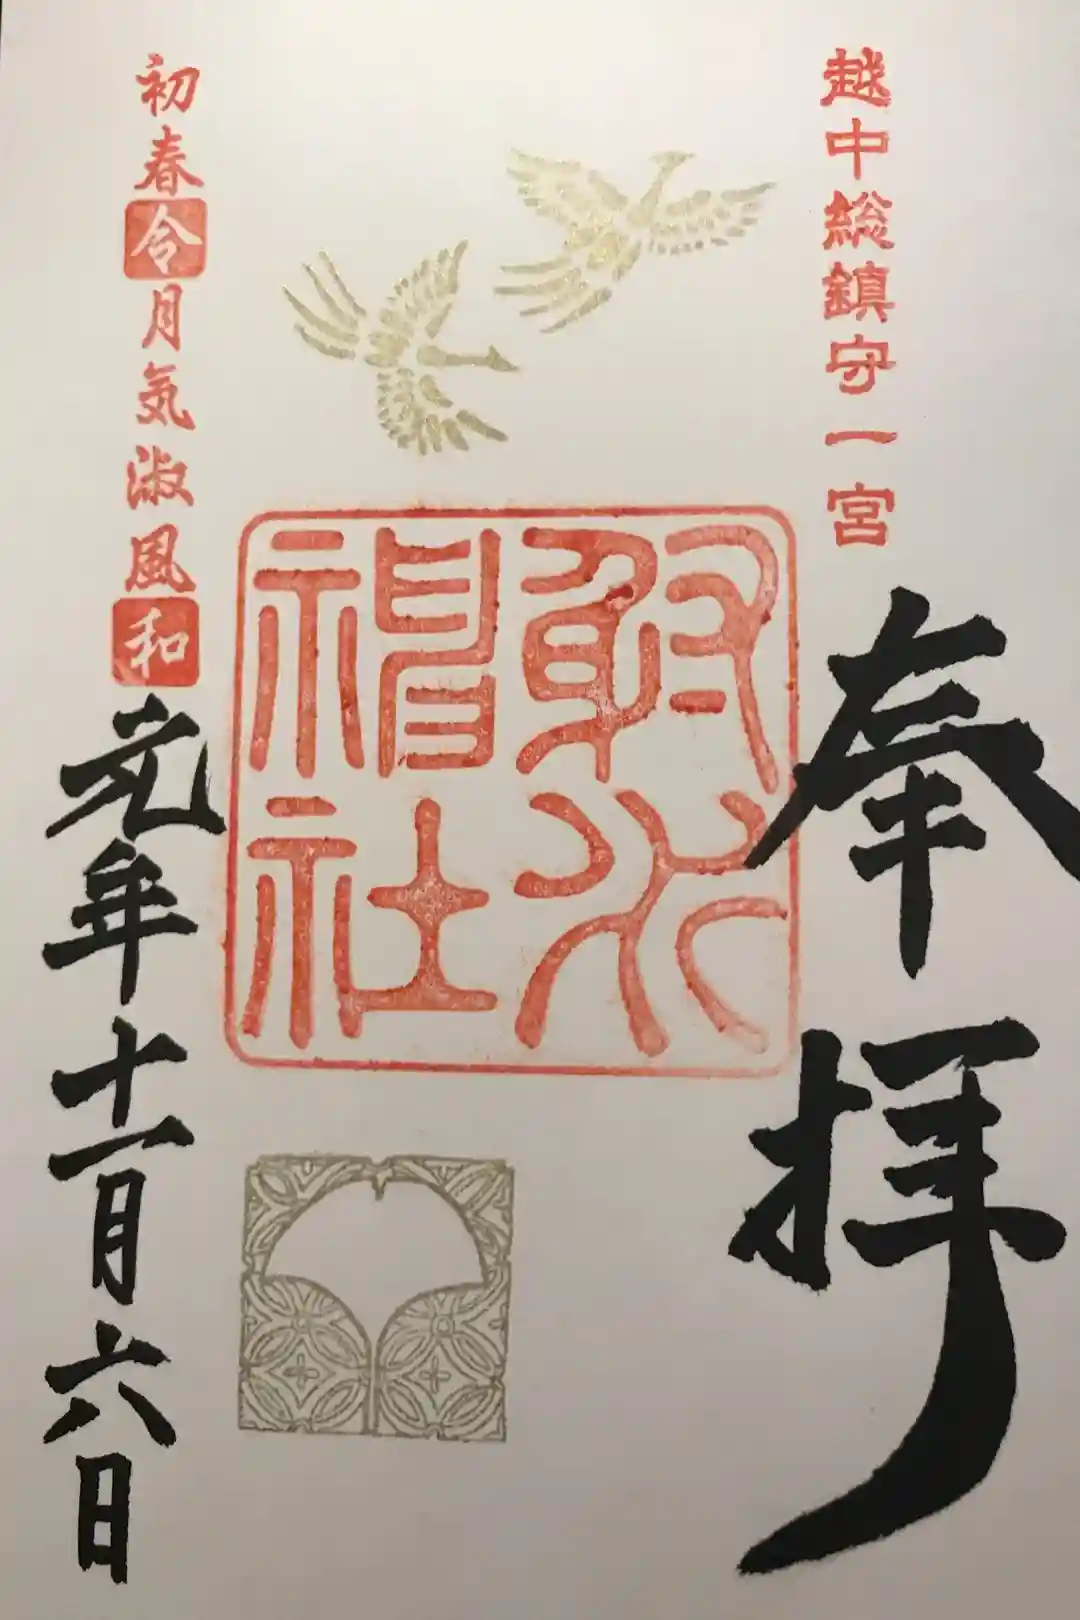 越中総鎮守一宮
奉拝
射水
神社
初春令月気淑風和
元年十一月六日